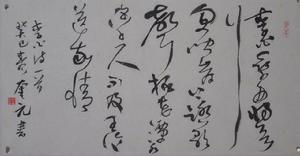 李白乘舟将欲
行
忽闻岸上踏歌
声桃花潭水
深千尺不及汪伦
送我情
李白诗一首
癸巳春奎元书